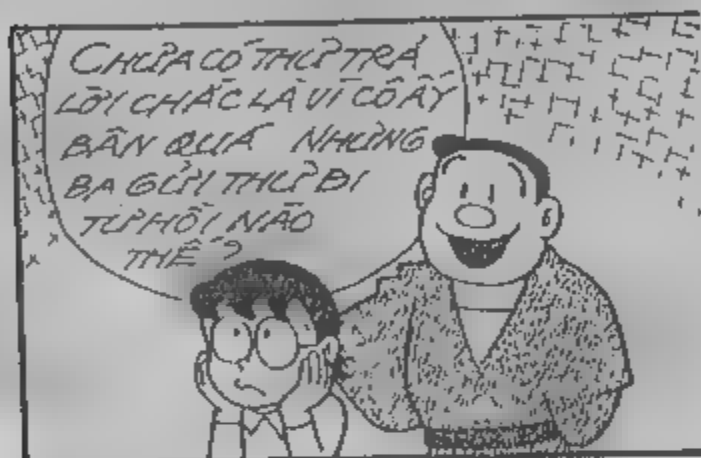 CHƯA CÓ THƯ TRẢ
LỜI CHẮC LÀ VÌ CÔ ẤY
BẬN QUÁ NHƯNG
BA GỬI THƯ ĐI
TỪ HỒI NÀO
THẾ?